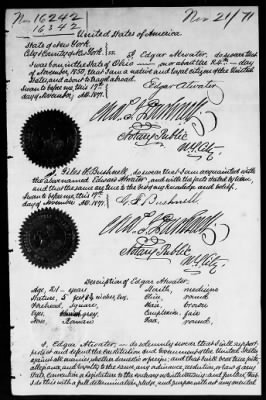 No 16242
16342
Nov 21/71
United States of America.
State of New York
City & County of New York } ss. I, Edgar Atwater, do swear that
I was born in the State of Ohio — on or about the 24th — day
of November, 1850, that I am a native and loyal citizen of the United
States, and about to travel abroad.
Sworn to before me this 17th
day of November, AD. 1871.
Edgar Atwater
Notary Public
N.Y. Co.
I, Giles F. Bushnell, do swear that I am acquainted with
the above named Edgar Atwater, and with the facts stated by him,
and that the same are true to the best of my knowledge and belief.
Sworn to before me this 17th
day of November AD. 1871.
G. F. Bushnell.
Notary Public
N.Y. Co.
Description of Edgar Atwater.
Age, 21 — years
Mouth, medium
Stature, 5 feet inches, Eng.
Chin, round
Forehead, square
Hair, brown
Eyes, grey
Complexion, fair
Nose, Roman
Face, round
I, Edgar Atwater — do solemnly swear that I will support,
protect and defend the Constitution and Government of the United States
against all enemies, whether domestic or foreign; and that I will bear true faith,
allegiance, and loyalty to the same, any ordinance, resolution or law of any
State, Convention or Legislature to the contrary notwithstanding; and further, that
I do this with a full determination, pledge, and purpose, without any mental